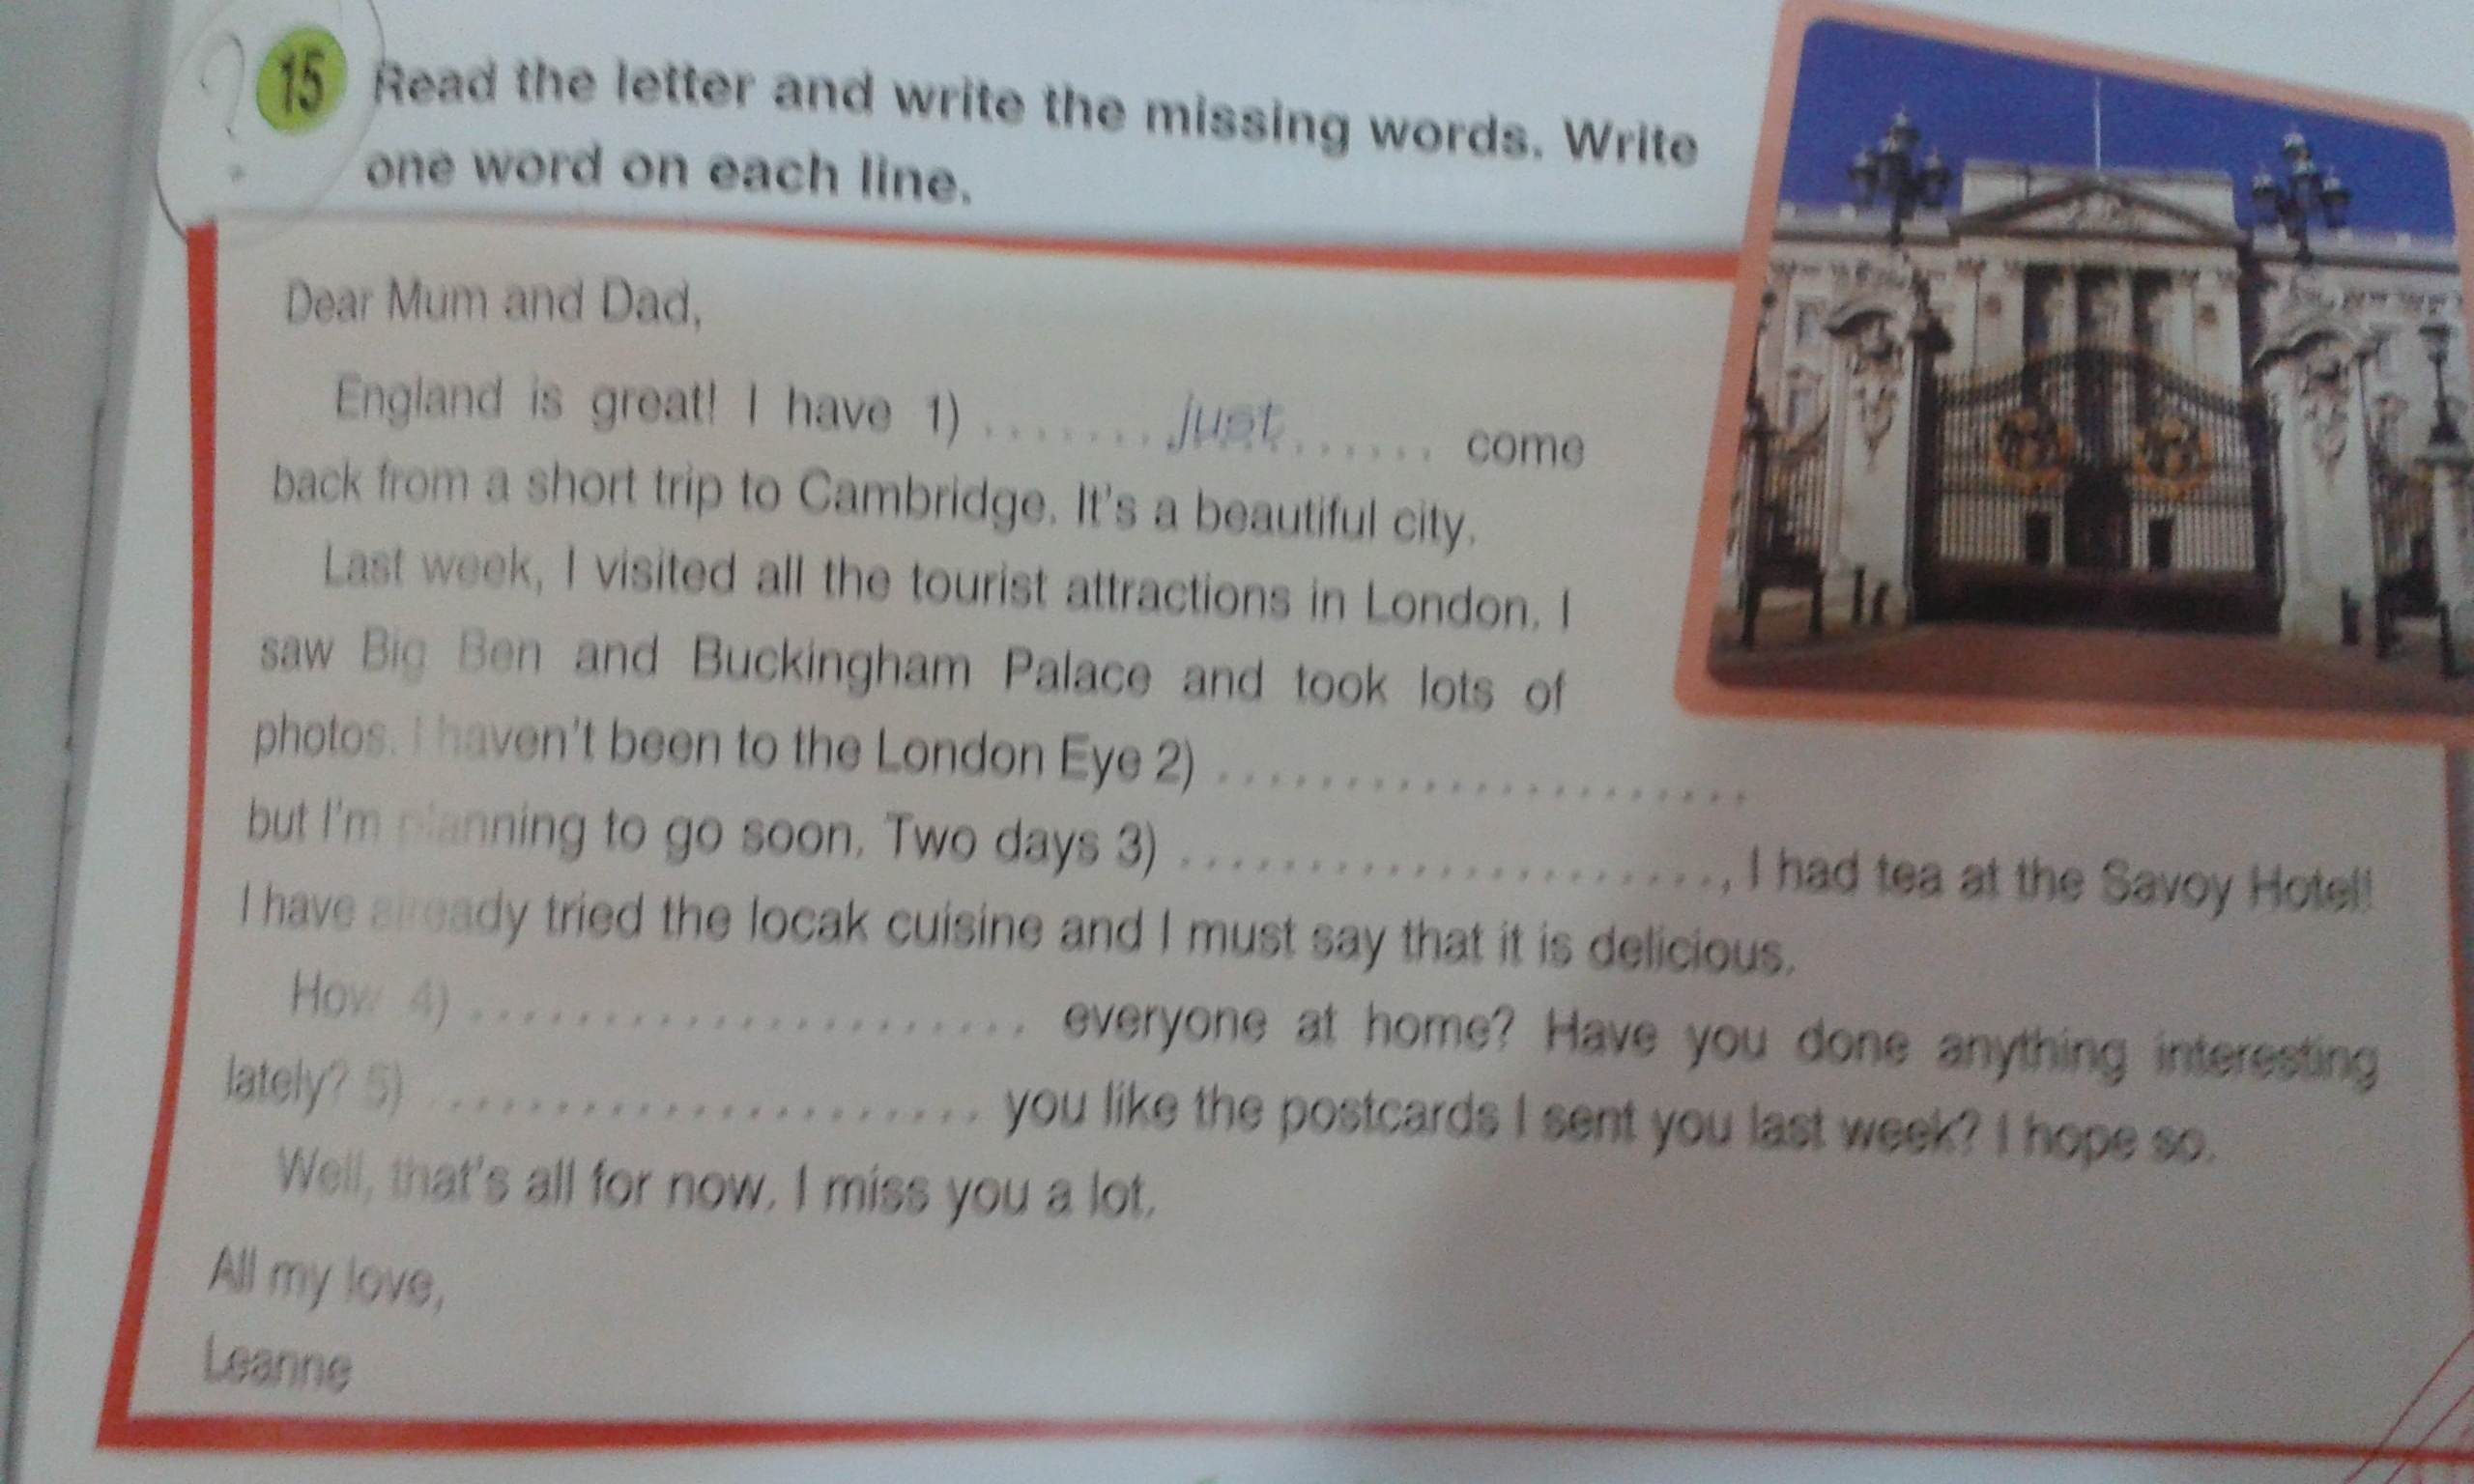 15 Read the letter and write the missing words. Write
one word on each line.
Dear Mum and Dad,
England is great! I have 1) ....... just ...... come
back from a short trip to Cambridge. It's a beautiful city.
Last week, I visited all the tourist attractions in London. I
saw Big Ben and Buckingham Palace and took lots of
photos. I haven't been to the London Eye 2) ......................
but I'm planning to go soon. Two days 3) ......................, I had tea at the Savoy Hotel!
I have already tried the locak cuisine and I must say that it is delicious.
How 4) ...................... everyone at home? Have you done anything interesting
lately? 5) ...................... you like the postcards I sent you last week? I hope so.
Well, that's all for now. I miss you a lot.
All my love,
Leanne